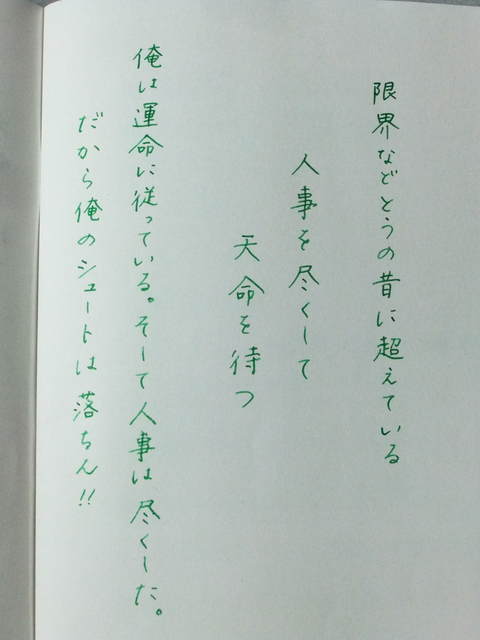 限界などとうの昔に超えている
人事を尽くして
天命を待つ
俺は運命に従っている。そして人事は尽くした。
だから俺のシュートは落ちん!!